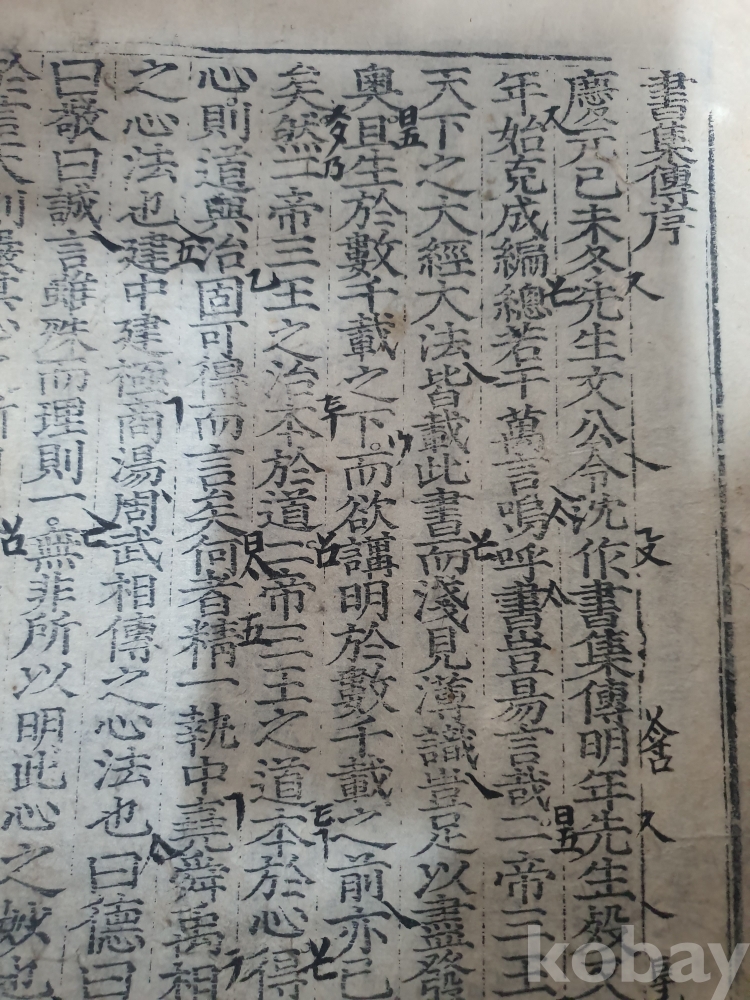 書集傳序
慶元己未冬先生文公令沈作書集傳明年先生歿又
年始克成編總若干萬言嗚呼書豈易言哉二帝三王
天下之大經大法皆載此書而淺見薄識豈足以盡發
奧且生於數千載之下而欲講明於數千載之前亦已
矣然二帝三王之治本於道二帝三王之道本於心得
心則道與治固可得而言矣何者精一執中堯舜禹相
之心法也建中建極商湯周武相傳之心法也曰德曰
曰敬曰誠言雖殊而理則一無非所以明此心之妙也
kobay